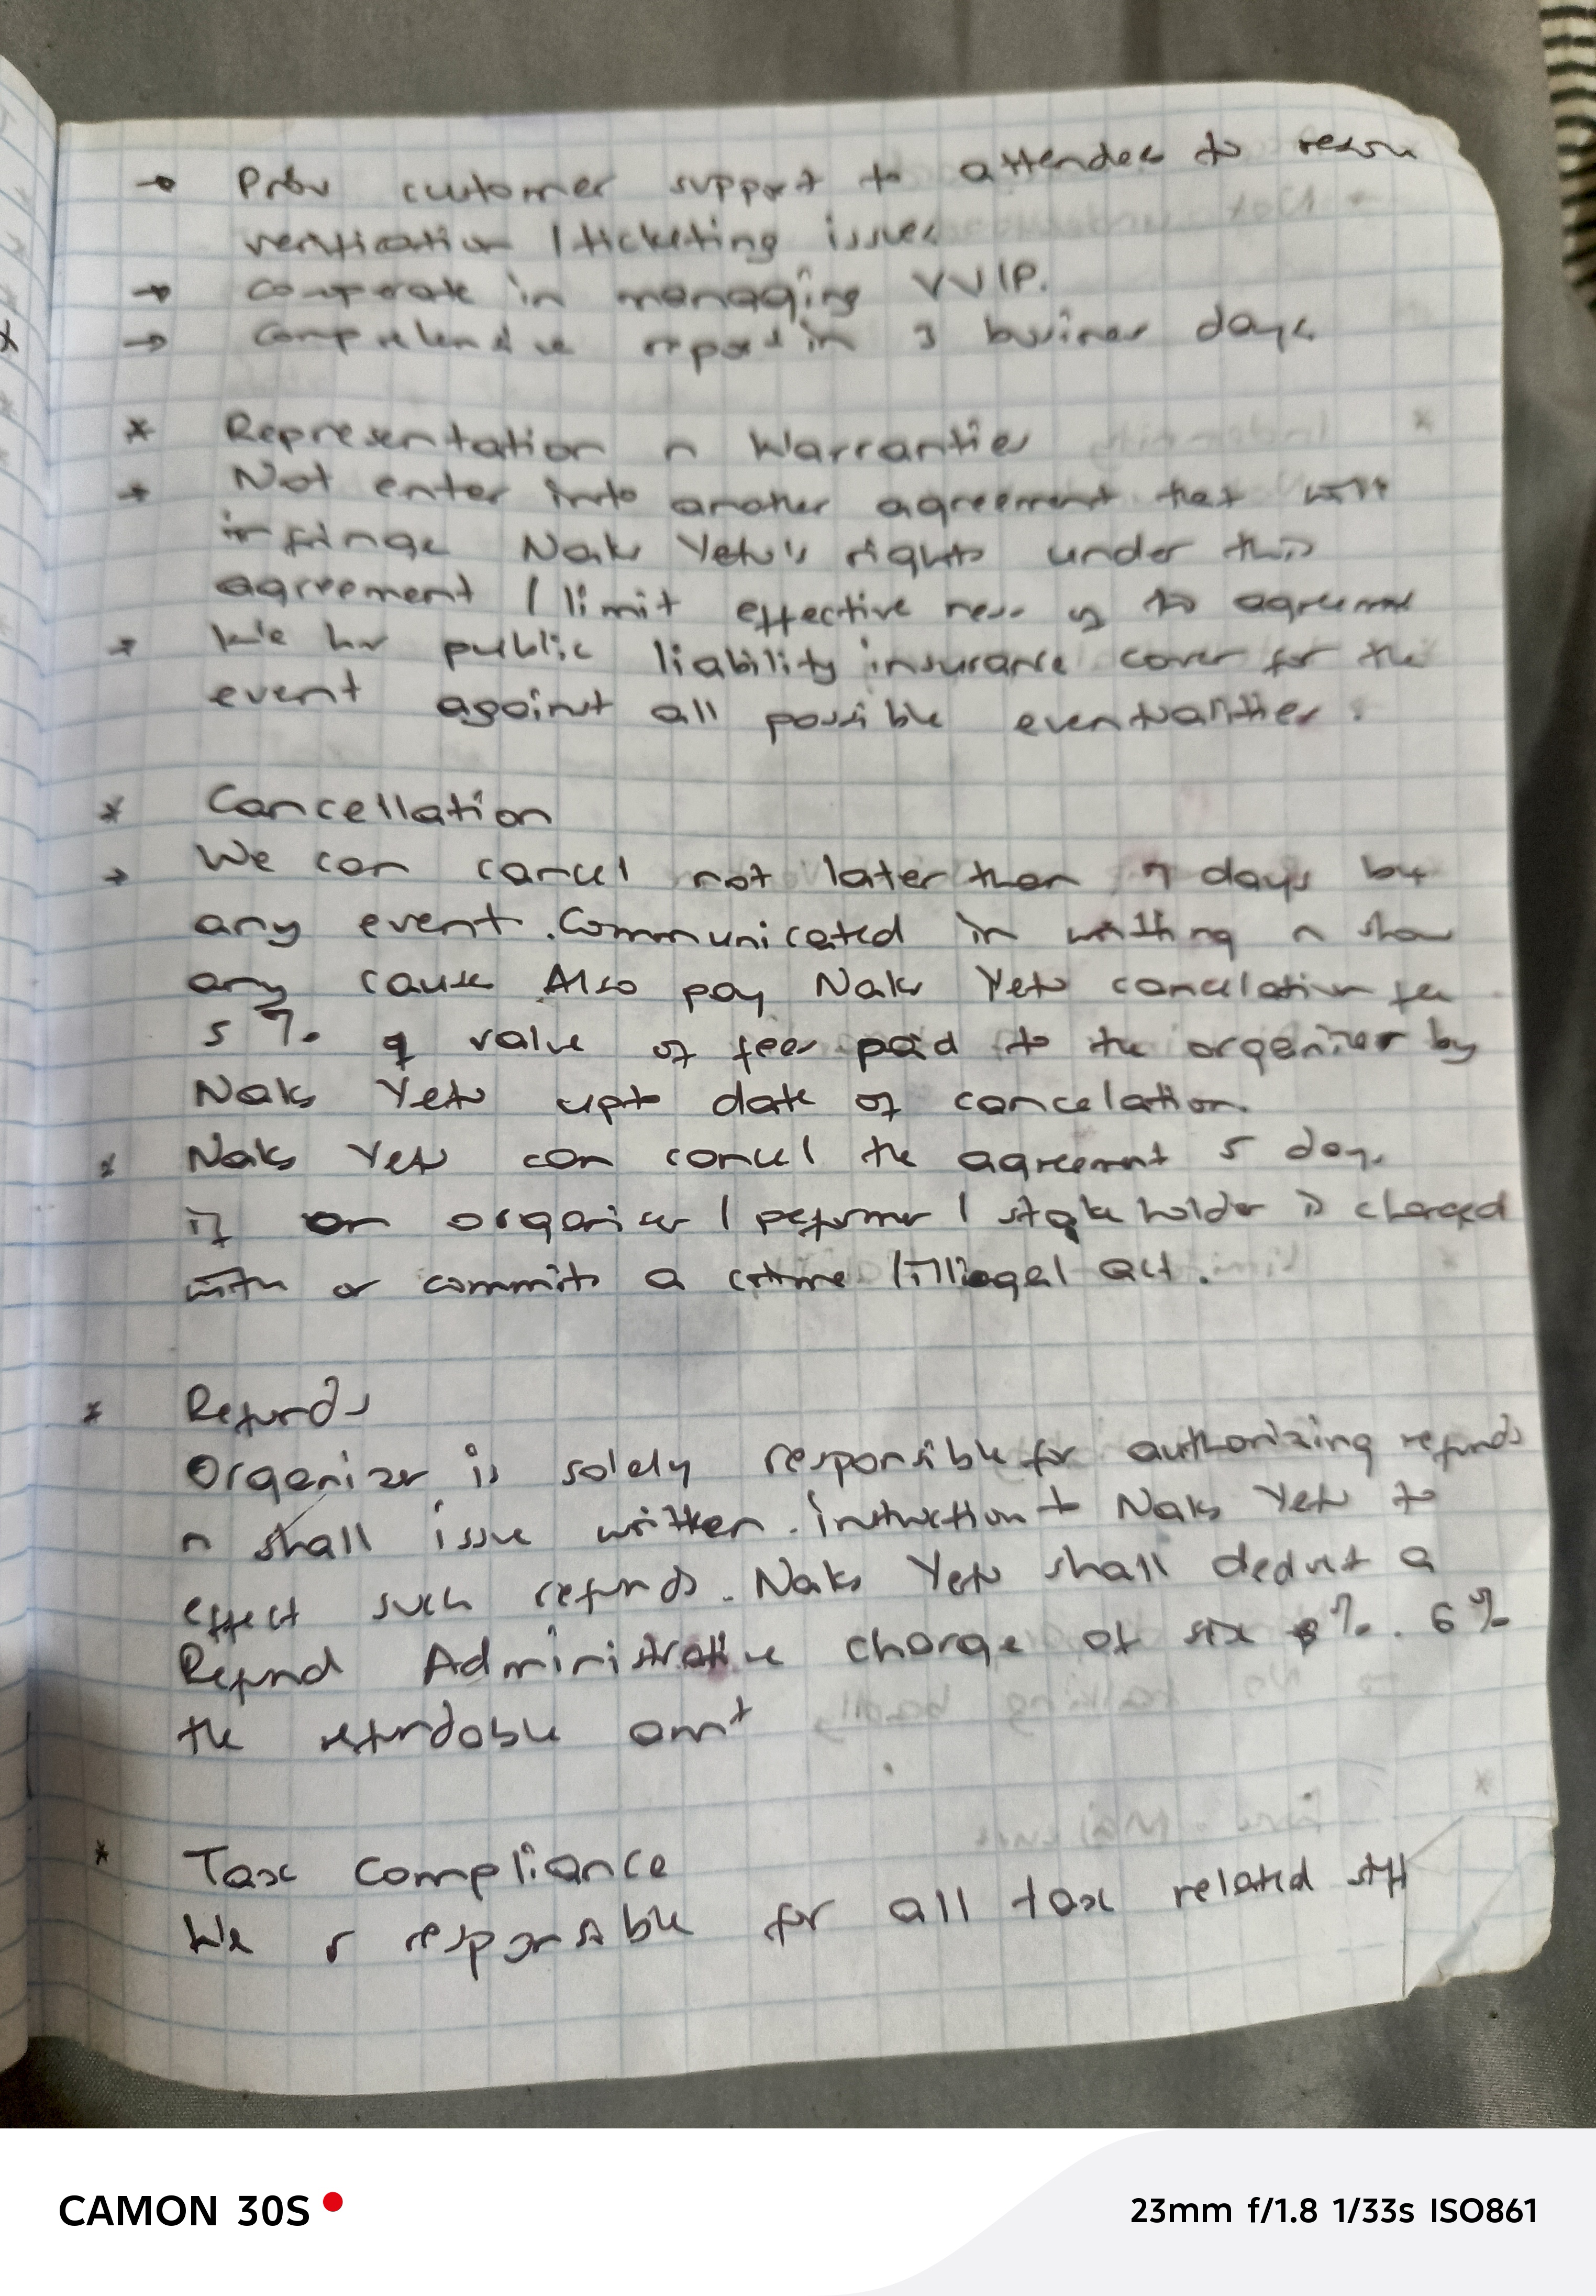 → Prov customer support to attendees to resolv
verification / ticketing issues
→ cooperate in managing VVIP.
→ comprehensive report in 3 business days
* Representation n Warranties
→ Not enter into another agreement that will
infringe Naks Yetu's rights under this
agreement / limit effective ness of the agreement
→ We hv public liability insurance cover for the
event against all possible eventualities.
* Cancellation
→ We can cancel not later than 7 days b4
any event. Communicated in writing n show
any cause Also pay Naks Yetu cancelation fee
5 % of value of fees paid to the organizer by
Naks Yetu upto date of cancelation.
* Naks Yetu can cancel the agreement 5 days
if an organiser / peformer / stake holder is charged
with or commits a crime / illegal act.
* Refunds
Organizer is solely responsible for authorizing refunds
n shall issue written instruction t Naks Yetu to
effect such refunds. Naks Yetu shall deduct a
Refund Administrative charge of six %. 6%
the refundable amt
* Tax compliance
We r responsible for all tax related stff
CAMON 30S
23mm f/1.8 1/33s ISO861